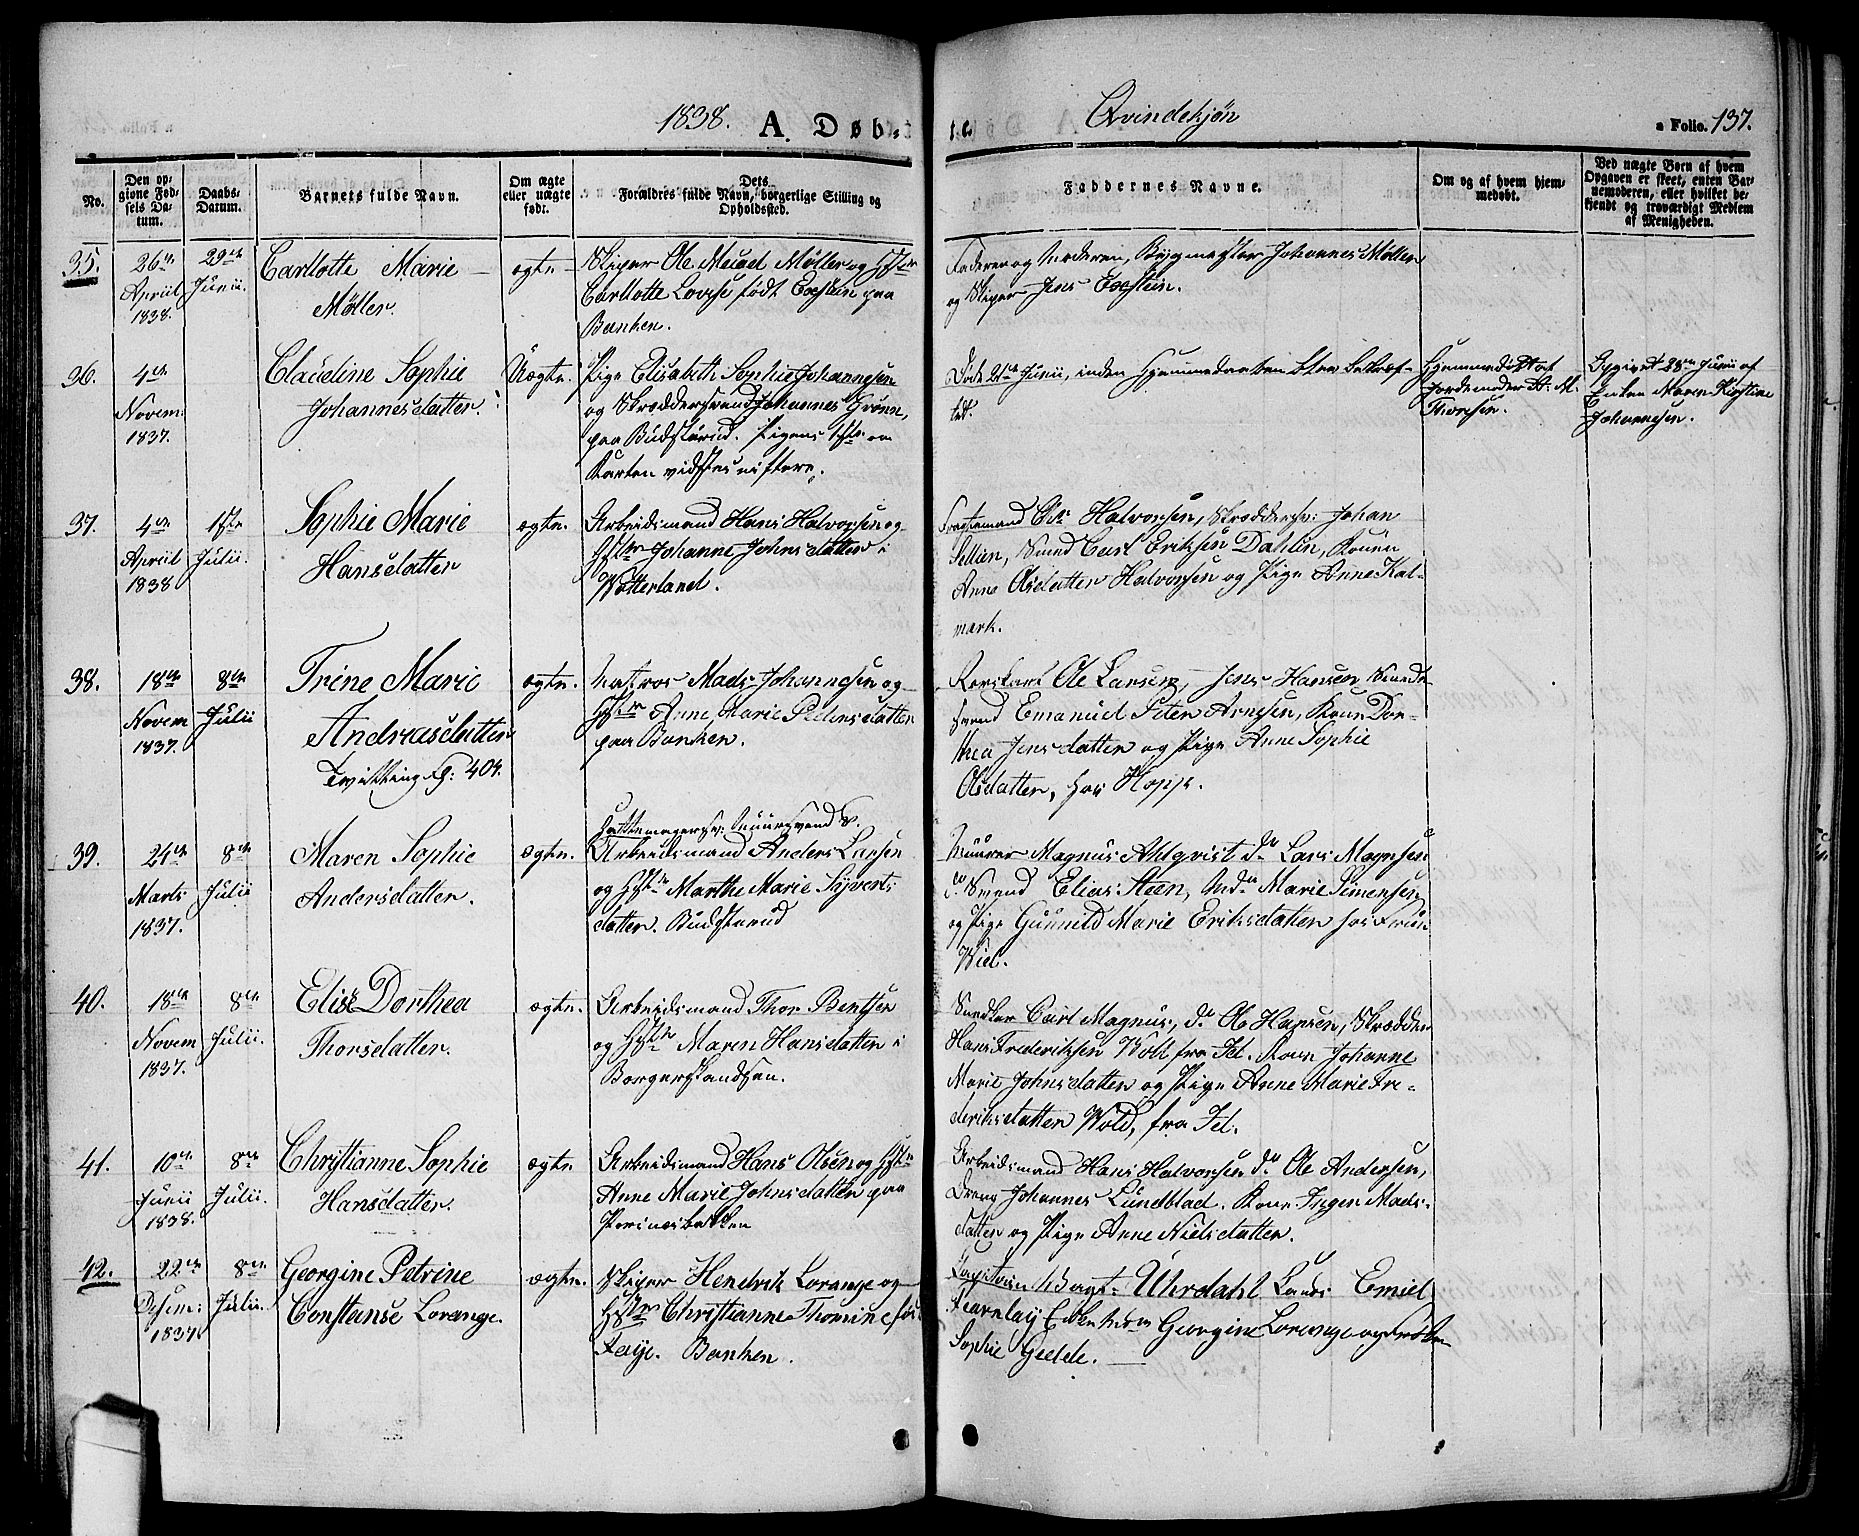 1838. A. Døb- te. Qvindekjøn a Folio. 137.
No.
Den op-
givne Fød-
sels Da-
tum.
Daabs-
Datum.
Barnets fulde Navn.
Om ægte
eller uægte
født.
Dets
Forældres fulde Navn, borgerlige Stilling og
Opholdssted.
Faddernes Navne.
Om og af hvem hjem-
medøbt.
Ved uægte Børn af hvem
Opgaven er skeet, enten Bar-
nemoderen, eller hvilket be-
kjendt og troværdigt Medlem
af Menigheden.
35.
26de
Apriil
1838.
29de
Junii.
Carllotte Marie
Møller.
ægte
Skiper Ole Møller og Hstr
Carllotte Lovise født Eckstein paa
Banken.
Faderen og Moderen, Bygmester Johannes Møller
og Skiper Jens Eckstein.
36.
4de
Novem
1837.
Claudine Sophie
Johannesdatter.
Uægte.
Pige Elisabeth Sophie Johannesen
og Skræddersvend Johannes Grønn,
paa Budstarud. Pigens 1ste om
Karlen vidstes ei flere.
Døde 21de Junii, inden Hjemmedaaben blev bekræf-
tet.
Hjemmedøbt af
Jordemoder M.
Thoresen.
Opgivet 28de Junii af
Enken Maren Kirstine
Johannesen.
37.
4de
Apriil
1838
1ste
Julii.
Sophie Marie
Hansdatter
ægte.
Arbeidsmand Hans Halvorsen og
Hstr Johanne Johnsdatter i
Watterland.
Halvorsen, Skræddersv: Johan
Sellien, Smed Carl Eriksen Dahlin, Konen
Anne Olsdatter Halvorsen og Pige Anne Kal-
mark.
38.
18de
Novem
1837.
8de
Julii
Trine Marie
Andreasdatter
Tvilling
ægte.
Matros Mads Johannesen og
Hstr Anne Marie Pedersdatter
paa Banken.
Ole Larsen, Jens Hansen Smede-
svend Emanuel Peter Arnesen, Kone Dor-
thea Jensdatter og Pige Anne Sophie
Olsdatter, hos Hoppe.
39.
24de
Marts
1837.
8de
Julii
Maren Sophie
Andersdatter.
ægte.
Hattemagersv: Muursvend
Arbeidsmand Anders Larsen
og Hstr Marthe Marie Syverts-
datter. Budstarud
Muurer Magnus Ahlqvist do Lars Magnsen
Smed Elias Steen, Marie Simensen
og Pige Gunnild Marie Eriksdatter hos Fruen
Wiel.
40.
18de
Novem
1837.
8de
Julii.
Elise Dorthea
Thorsdatter.
ægte.
Arbeidsmand Thor Bentsen
og Hstr Maren Hansdatter i
Borgerskandsen.
Snedker Carl Magnus, do Ole Hansen, Skrædder
Hans Frederiksen Wold fra Id. Kone Johanne
Marie Johnsdatter og Pige Anne Marie Fre-
deriksdatter Wold, fra Id.
41.
10de
Junii
1838.
8de
Julii.
Christianne Sophie
Hansdatter.
ægte
Arbeidsmand Hans Olsen og Hstr
Anne Marie Johnsdatter paa
Perinesbakken
Arbeidsmand Hans Halvorsen do Ole Andersen,
Dreng Johannes Lundblad. Kone Inger Mads-
datter og Pige Anne Nielsdatter.
42.
22de
Desem:
1837
8de
Julii.
Georgine Petrine
Constanse Lorange.
ægte.
Skiper Hendrik Lorange og
Hstr Christianne Thomine født
Faye. Banken.
Capitain Vagt- Uhrdahl Emiel
Fearnlay Enken Georgine Lorange og Frøken
Sophie Gedde.